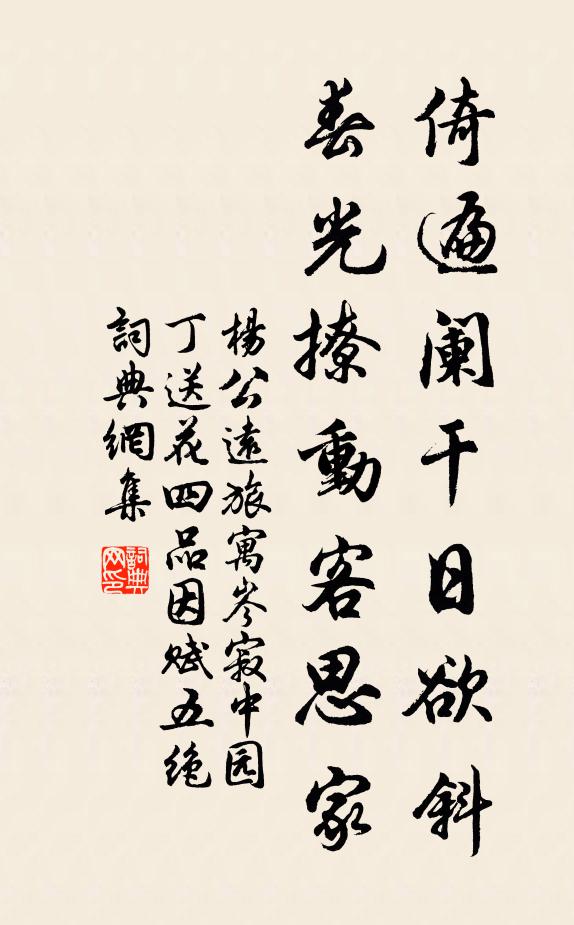 倚遍阑干日欲斜
春光撩動客思家
楊公遠旅寓岑寂中园
丁送花四品因赋五绝
詞典網集
詞典网印